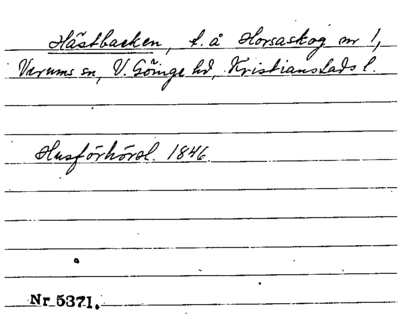 Hästbacken, t. å Horsaskog nr 1,
Verums sn, V. Göinge hd, Kristianstads l.
Husförhörsl. 1846.
Nr 5371.